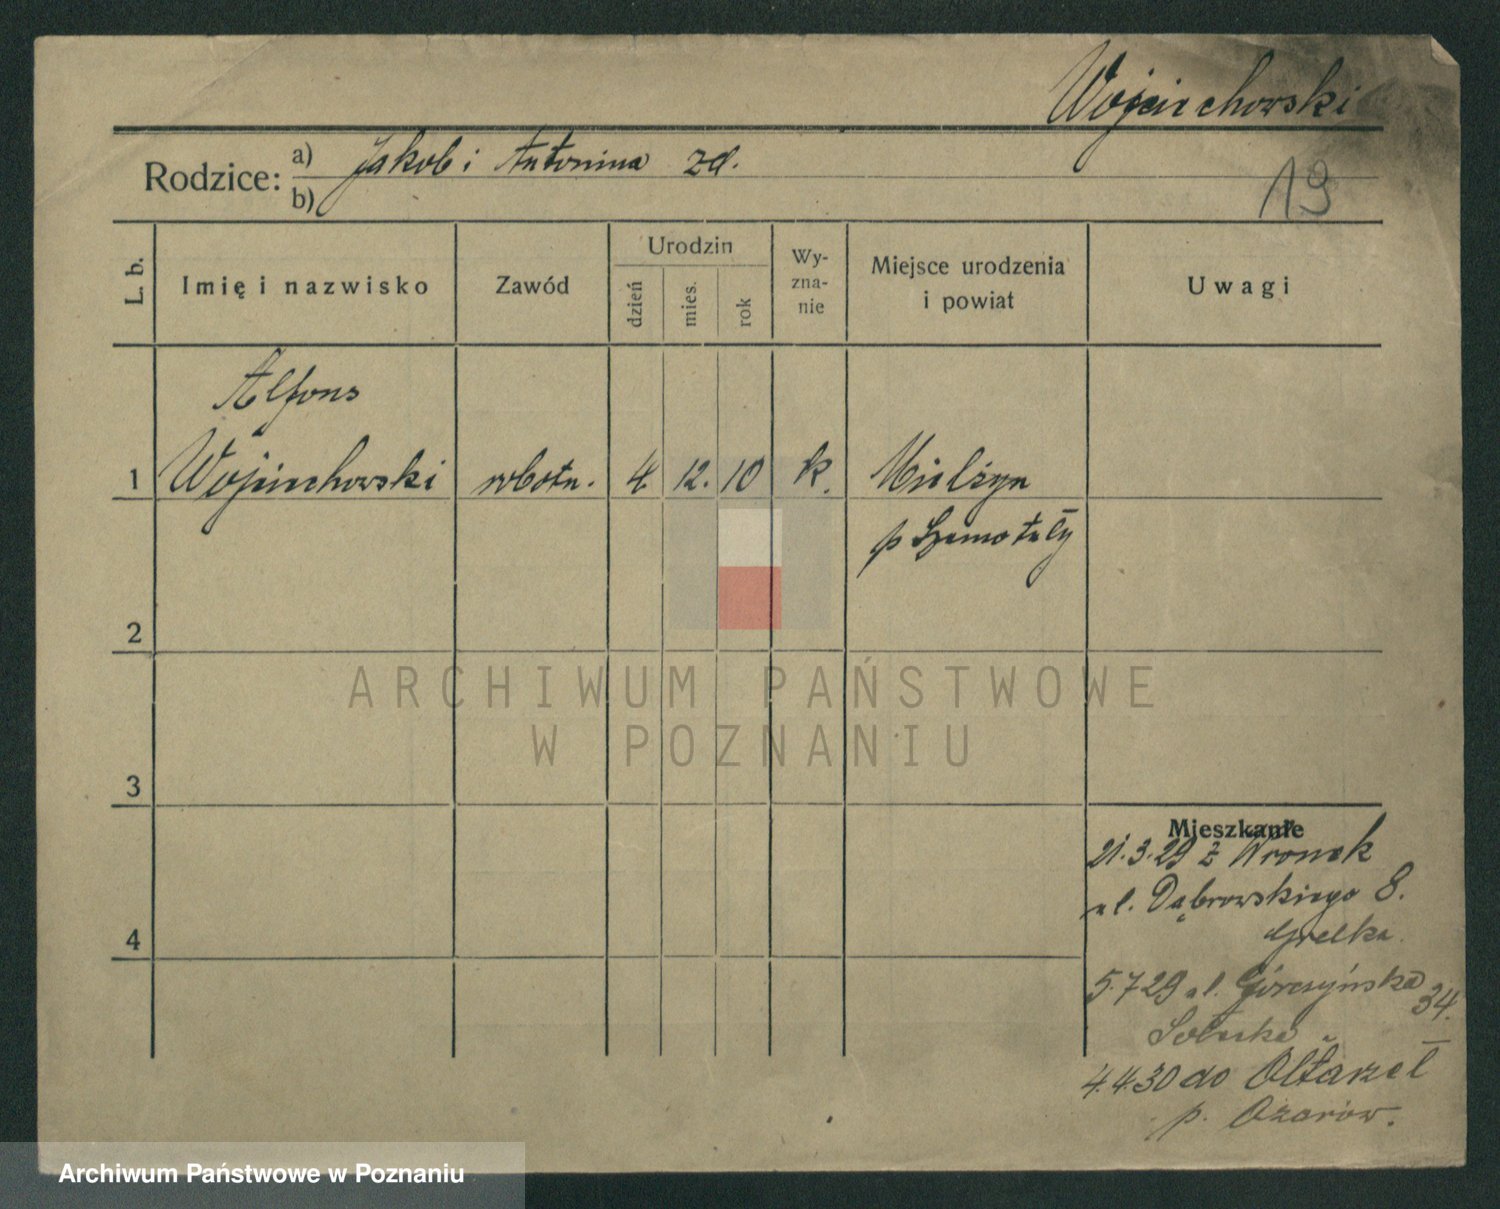 Wojciechowski
Rodzice: a) Jakob i Antonina zd.
b)
19
L. b.
Imię i nazwisko
Zawód
Urodzin
dzień
mies.
rok
Wy-
zna-
nie
Miejsce urodzenia
i powiat
Uwagi
Alfons
1 Wojciechowski robotn. 4 12. 10 k. Mielżyn
p Szamotuły
2
ARCHIWUM PAŃSTWOWE
W POZNANIU
3
Mieszkanie
21.3.29 z Wronek
ul. Dąbrowskiego 8.
Grelka
4
5.7.29 ul. Górczyńska 34.
4.4.30 do Ołtarzeł
p. Ożarów.
Archiwum Państwowe w Poznaniu